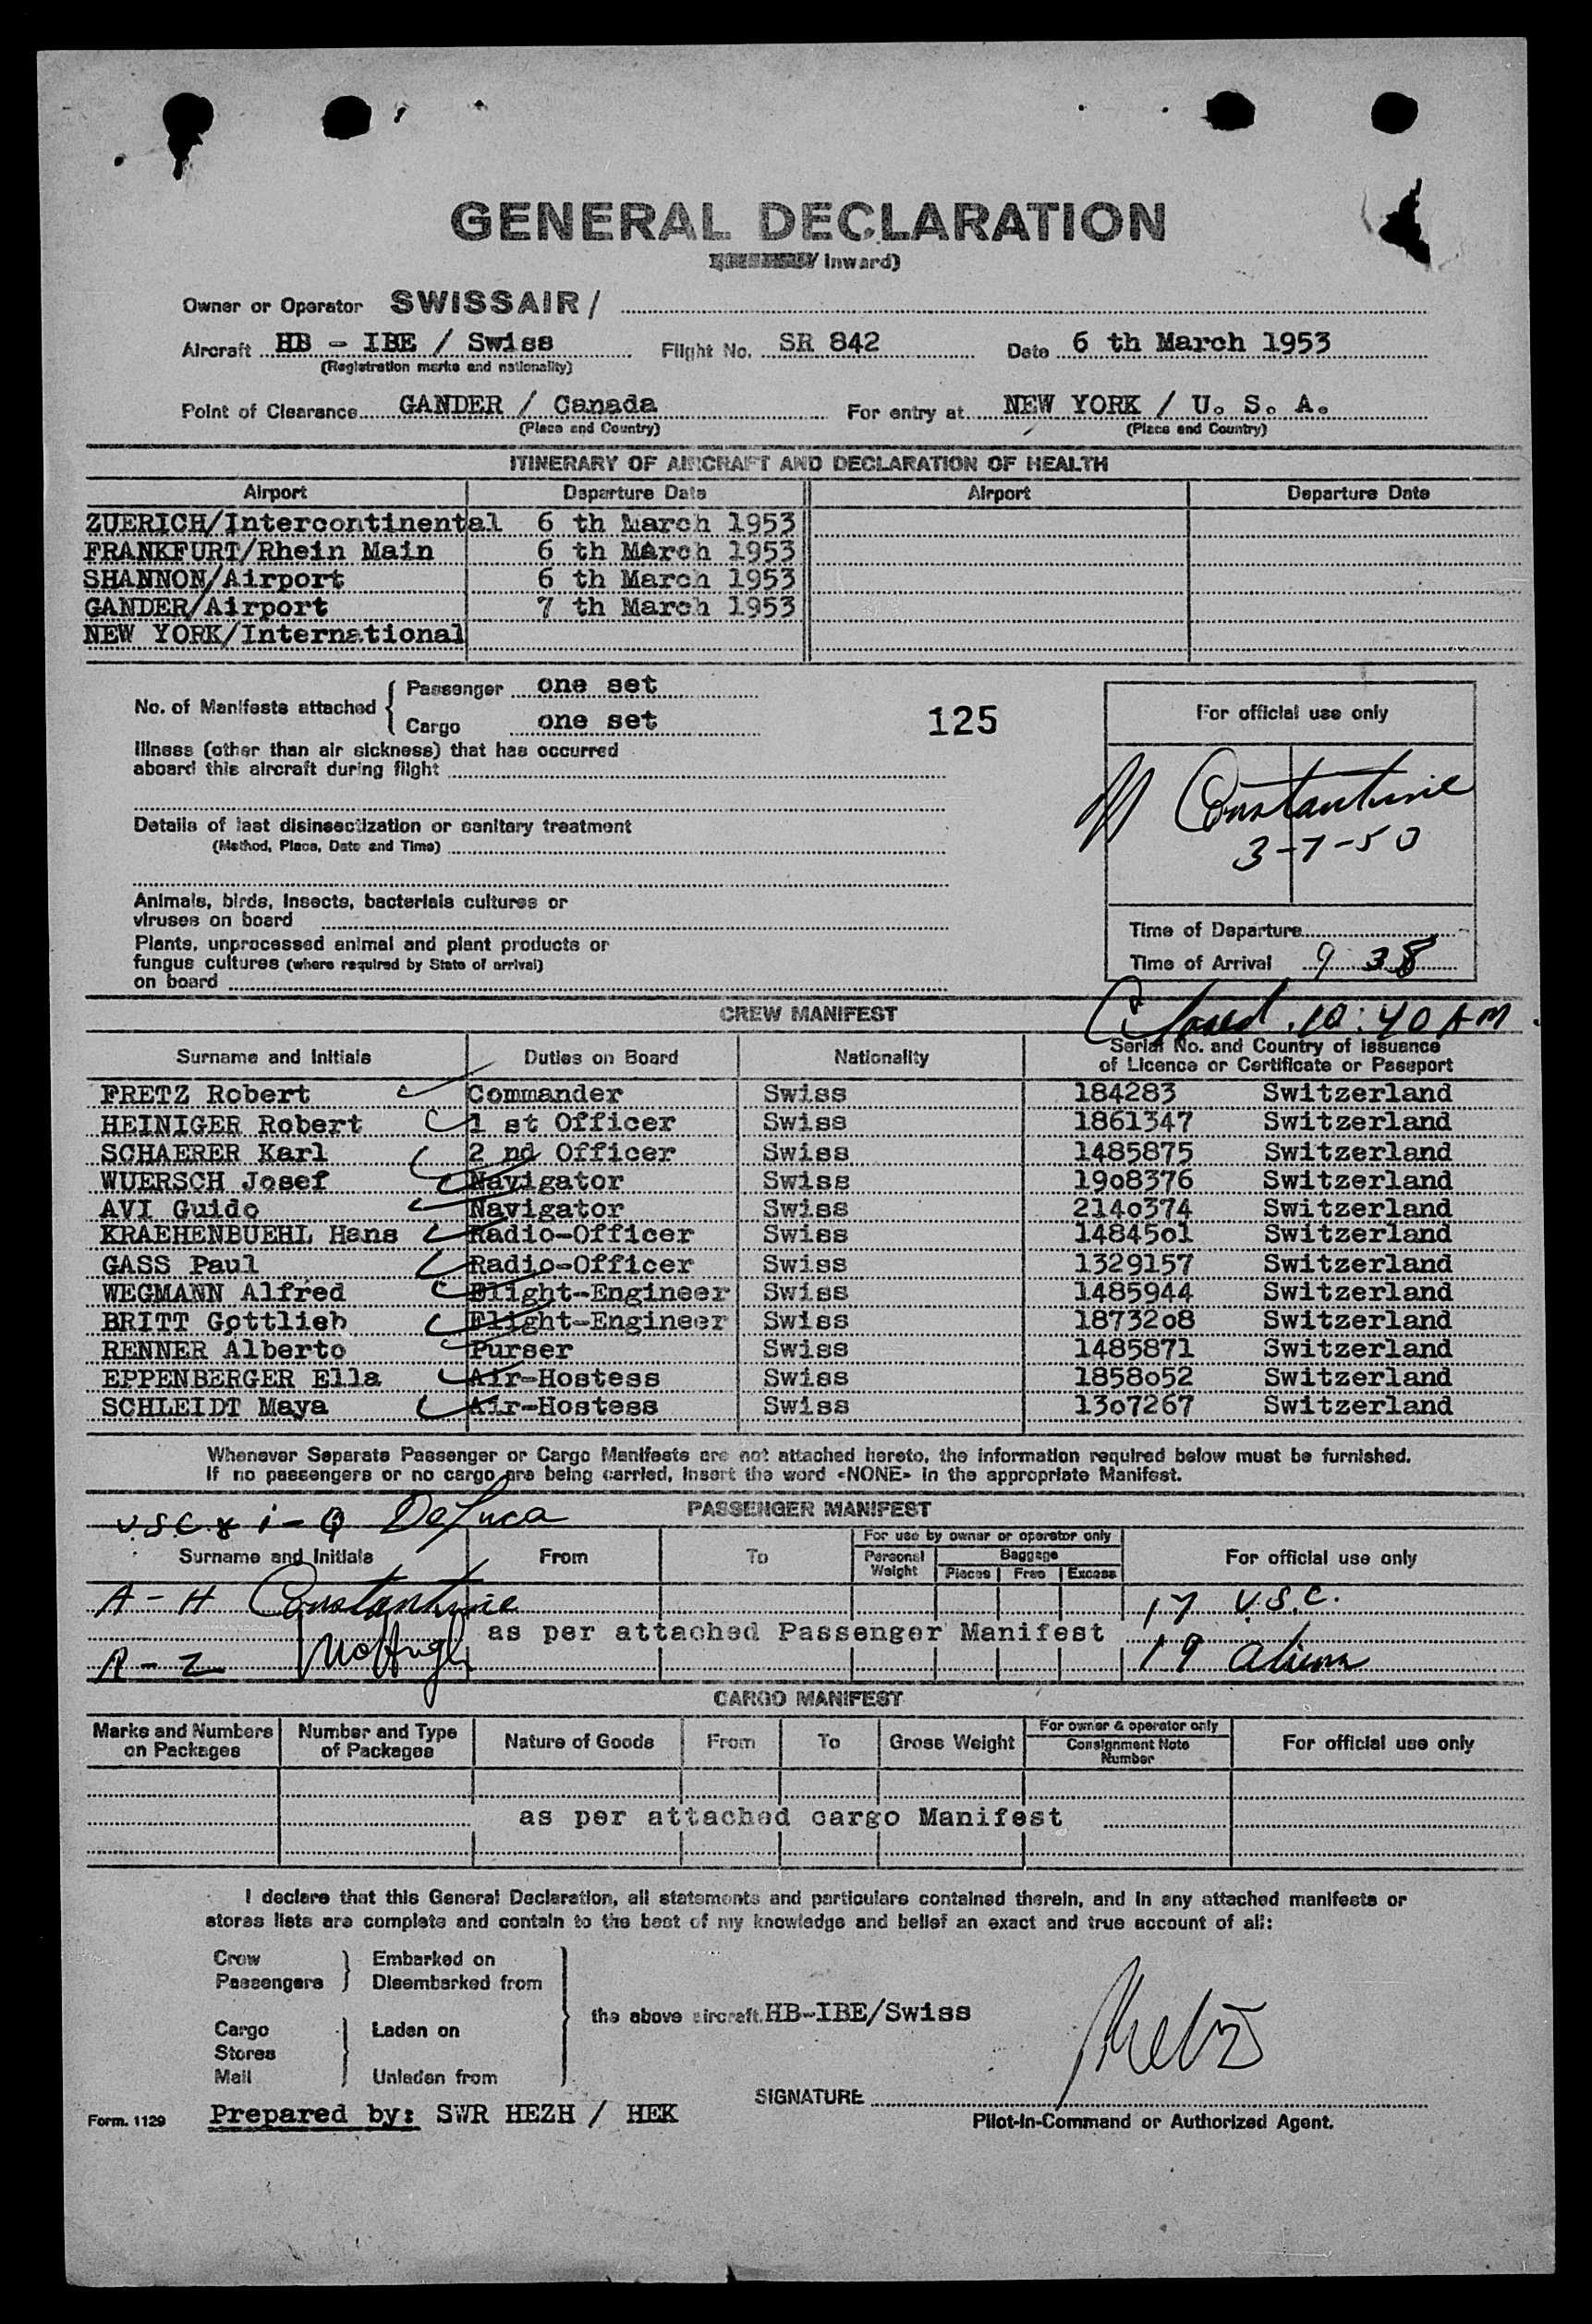 GENERAL DECLARATION
Inward)
Owner or Operator SWISSAIR /
Aircraft HB - IBE / Swiss Flight No. SR 842 Date 6 th March 1953
(Registration marks and nationality)
Point of Clearance GANDER / Canada For entry at NEW YORK / U. S. A.
(Place and Country) (Place and Country)
ITINERARY OF AIRCRAFT AND DECLARATION OF HEALTH
Airport Departure Date Airport Departure Date
ZUERICH/Intercontinental 6 th March 1953
FRANKFURT/Rhein Main 6 th March 1953
SHANNON/Airport 6 th March 1953
GANDER/Airport 7 th March 1953
NEW YORK/International
No. of Manifests attached { Passenger one set
Cargo one set
125
For official use only
Illness (other than air sickness) that has occurred
aboard this aircraft during flight
Constantine
3-7-53
Details of last disinsectization or sanitary treatment
(Method, Place, Date and Time)
Animals, birds, insects, bacterials cultures or
viruses on board
Plants, unprocessed animal and plant products or
fungus cultures (where required by State of arrival)
on board
Time of Departure
Time of Arrival 9 38
CREW MANIFEST
Closed 10:40 AM
Surname and Initials Duties on Board Nationality Serial No. and Country of issuance
of Licence or Certificate or Passport
FRETZ Robert Commander Swiss 184283 Switzerland
HEINIGER Robert 1 st Officer Swiss 1861347 Switzerland
SCHAERER Karl 2 nd Officer Swiss 1485875 Switzerland
WUERSCH Josef Navigator Swiss 19o8376 Switzerland
AVI Guido Navigator Swiss 214o374 Switzerland
KRAEHENBUEHL Hans Radio-Officer Swiss 14845o1 Switzerland
GASS Paul Radio-Officer Swiss 1329157 Switzerland
WEGMANN Alfred Flight-Engineer Swiss 1485944 Switzerland
BRITT Gottlieb Flight-Engineer Swiss 18732o8 Switzerland
RENNER Alberto Purser Swiss 1485871 Switzerland
EPPENBERGER Ella Air-Hostess Swiss 1858o52 Switzerland
SCHLEIDT Maya Air-Hostess Swiss 13o7267 Switzerland
Whenever Separate Passenger or Cargo Manifests are not attached hereto, the information required below must be furnished.
If no passengers or no cargo are being carried, insert the word «NONE» in the appropriate Manifest.
PASSENGER MANIFEST
USC & I - Q DeLuca
Surname and Initials From To For use by owner or operator only For official use only
Personal Weight Baggage
Pieces Free Excess
A - H Constantine 17 U.S.C.
as per attached Passenger Manifest
R - Z 19 Aliens
CARGO MANIFEST
Marks and Numbers on Packages Number and Type of Packages Nature of Goods From To Gross Weight For owner & operator only Consignment Note Number For official use only
as per attached cargo Manifest
I declare that this General Declaration, all statements and particulars contained therein, and in any attached manifests or
stores lists are complete and contain to the best of my knowledge and belief an exact and true account of all:
Crew } Embarked on
Passengers } Disembarked from
the above aircraft. HB-IBE/Swiss
Cargo } Laden on
Stores
Mail } Unladen from
SIGNATURE
Form. 1129 Prepared by: SWR HEZH / HEK
Pilot-in-Command or Authorized Agent.